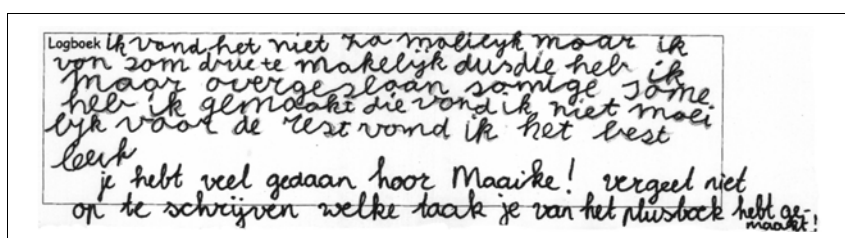 Logboek ik vond het niet zo moilijk maar ik
von som drie te makelijk dus die heb ik
maar overgeslaan somige some
heb ik gemaakt die vond ik niet moei
lijk voor de rest vond ik het best
leuk
je hebt veel gedaan hoor Maaike! vergeet niet
op te schrijven welke taak je van het plusboek hebt ge-
maakt!